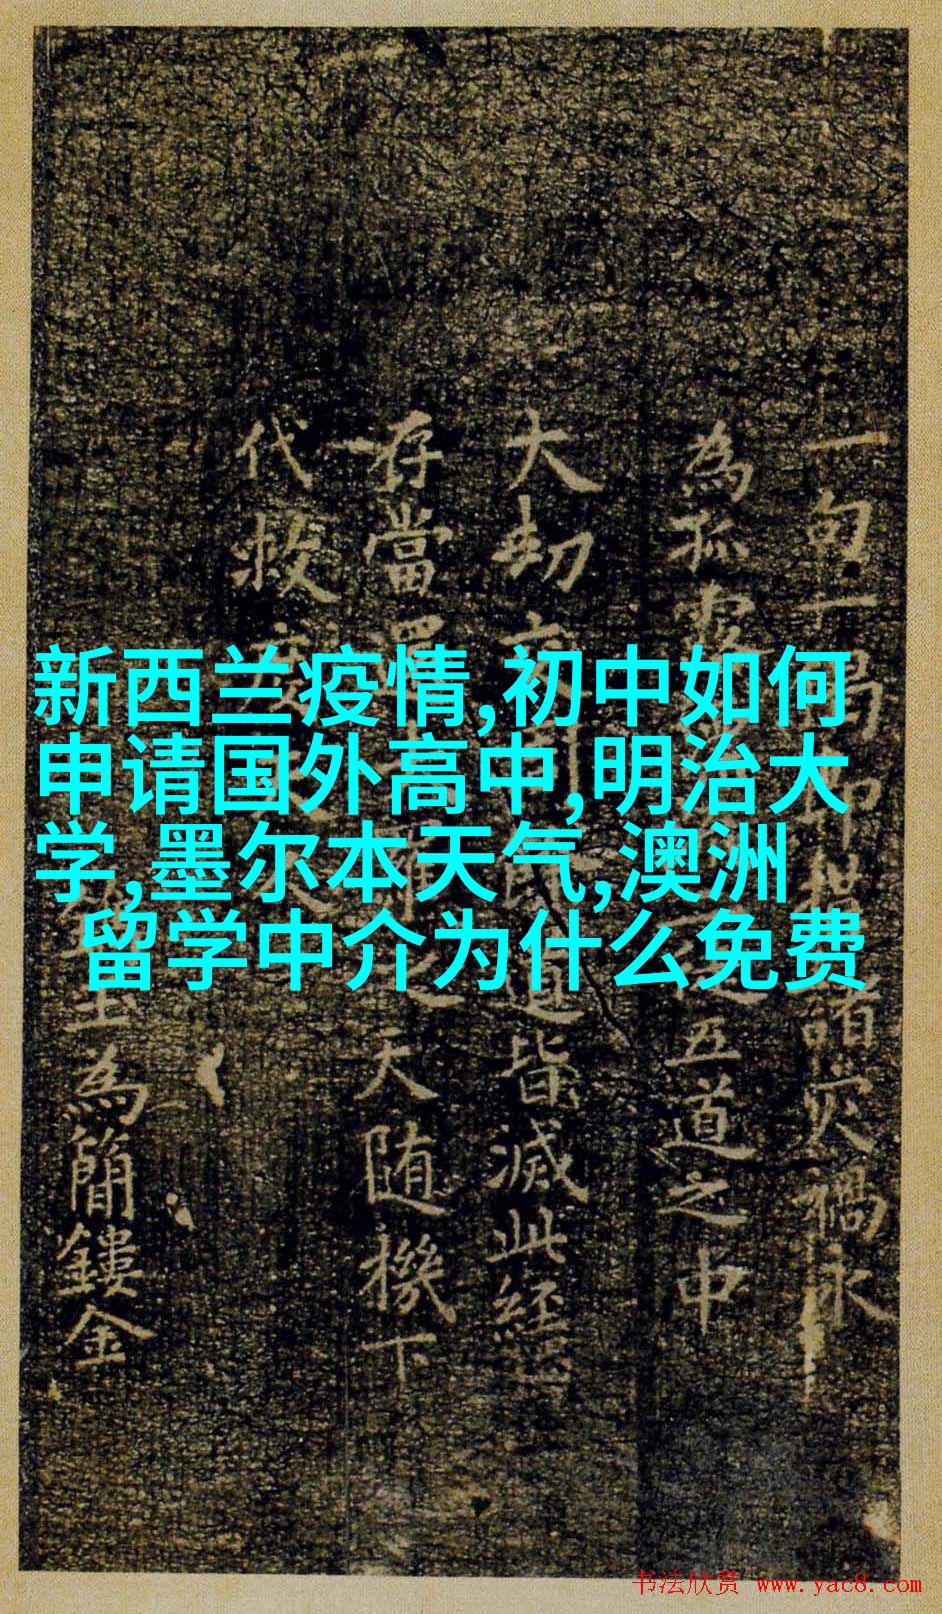 新西兰疫情,初中如何
申请国外高中,明治大
学,墨尔本天气,澳洲
留学中介为什么免费
一句一 諸灾禍永
為孤 五道之中
大劫 道皆滅此經
存當 天随機下
代救
玉為簡鏤金
书法欣赏 www.yac8.com